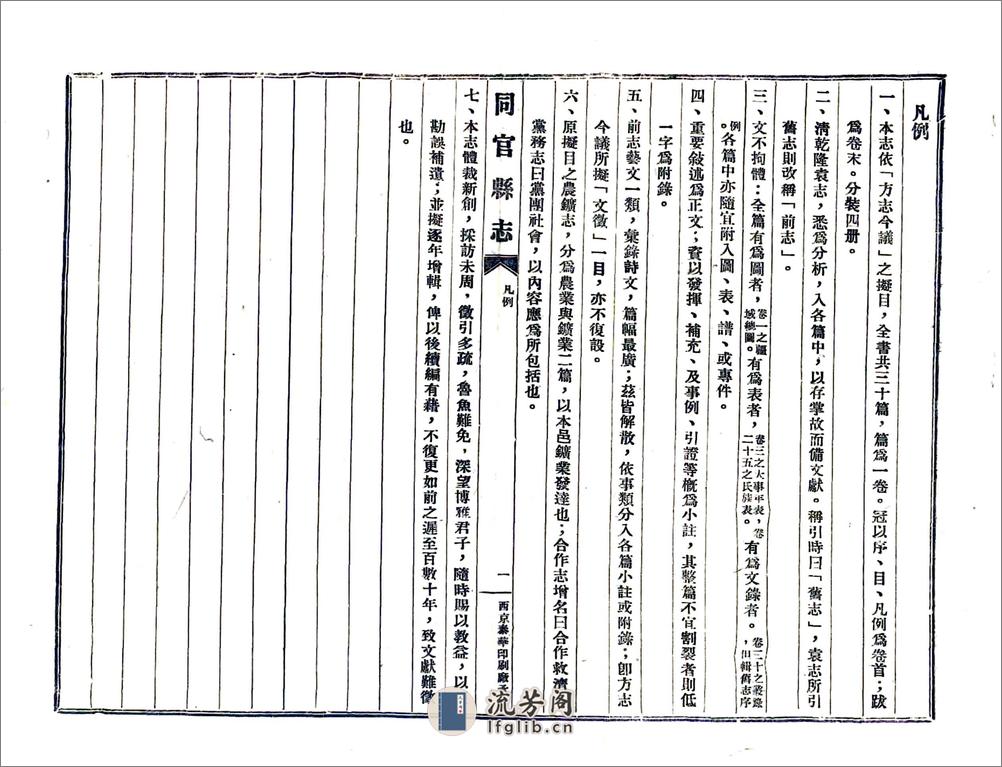 凡例
一、本志依「方志今議」之擬目，全書共三十篇，篇爲一卷。冠以序、目、凡例爲卷首；跋
爲卷末。分裝四册。
二、清乾隆袁志，悉爲分析，入各篇中，以存掌故而備文獻。稱引時曰「舊志」，袁志所引
舊志則改稱「前志」。
三、文不拘體：全篇有爲圖者，卷一之疆域總圖。有爲表者，卷三之大事年表，卷二十五之氏族表。有爲文錄者。卷三十之叢錄，但輯舊志序
例。各篇中亦隨宜附入圖、表、譜、或專件。
四、重要敍述爲正文；資以發揮、補充、及事例、引證等概爲小註，其整篇不宜割裂者則低
一字爲附錄。
五、前志藝文一類，彙錄詩文，篇幅最廣；茲皆解散，依事類分入各篇小註或附錄；卽方志
今議所擬「文徵」一目，亦不復設。
六、原擬目之農鑛志，分爲農業與鑛業二篇，以本邑鑛業發達也；合作志增名曰合作救濟
黨務志曰黨團社會，以內容應爲所包括也。
同官縣志
凡例
一
西京泰華印刷廠承
七、本志體裁新創，採訪未周，徵引多疏，魯魚難免，深望博雅君子，隨時賜以教益，以
勘誤補遺；並擬逐年增輯，俾以後續編有藉，不復更如前之遲至百數十年，致文獻難徵
也。
流芳阁
lfglib.cn